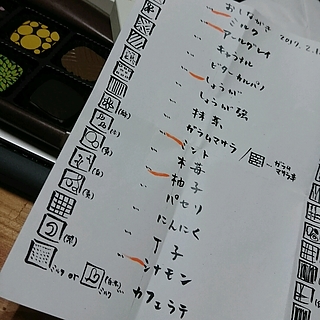 おしながき 2017.2.1
ミルク
〃 アールグレイ
〃 キャラメル
〃 ビターカルバリ
〃 しょうが
〃 しょうが強
〃 抹茶
〃 ガラムマサラ / ガラムマサラ赤
〃 ミント
〃 木苺
〃 柚子
〃 パセリ
〃 にんにく
〃 丁子
〃 シナモン
カフェラテ
ミルク or ミルク